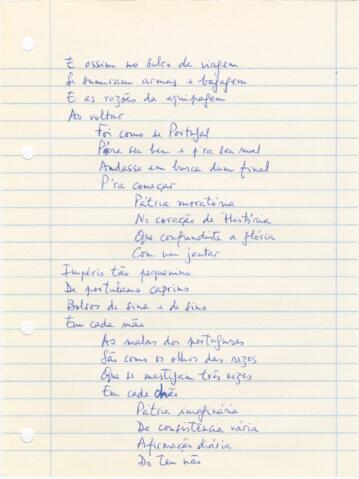 E assim no sulco da viagem
Se sumiram armas e bagagem
E as razões da equipagem
Ao voltar
Foi como se Portugal
P'ra seu bem e p'ra seu mal
Andasse em busca dum final
P'ra começar
Pátria moratória
No coração da História
Que confundiste a glória
Com um jantar
Império tão pequenino
De portulano caprino
Bolsos de sina e de sino
Em cada mão
As malas dos portugueses
São como os olhos das rezes
Que se mastigam três vezes
Em cada chão
Pátria imaginária
De consistência vária
Afirmação diária
Do teu não